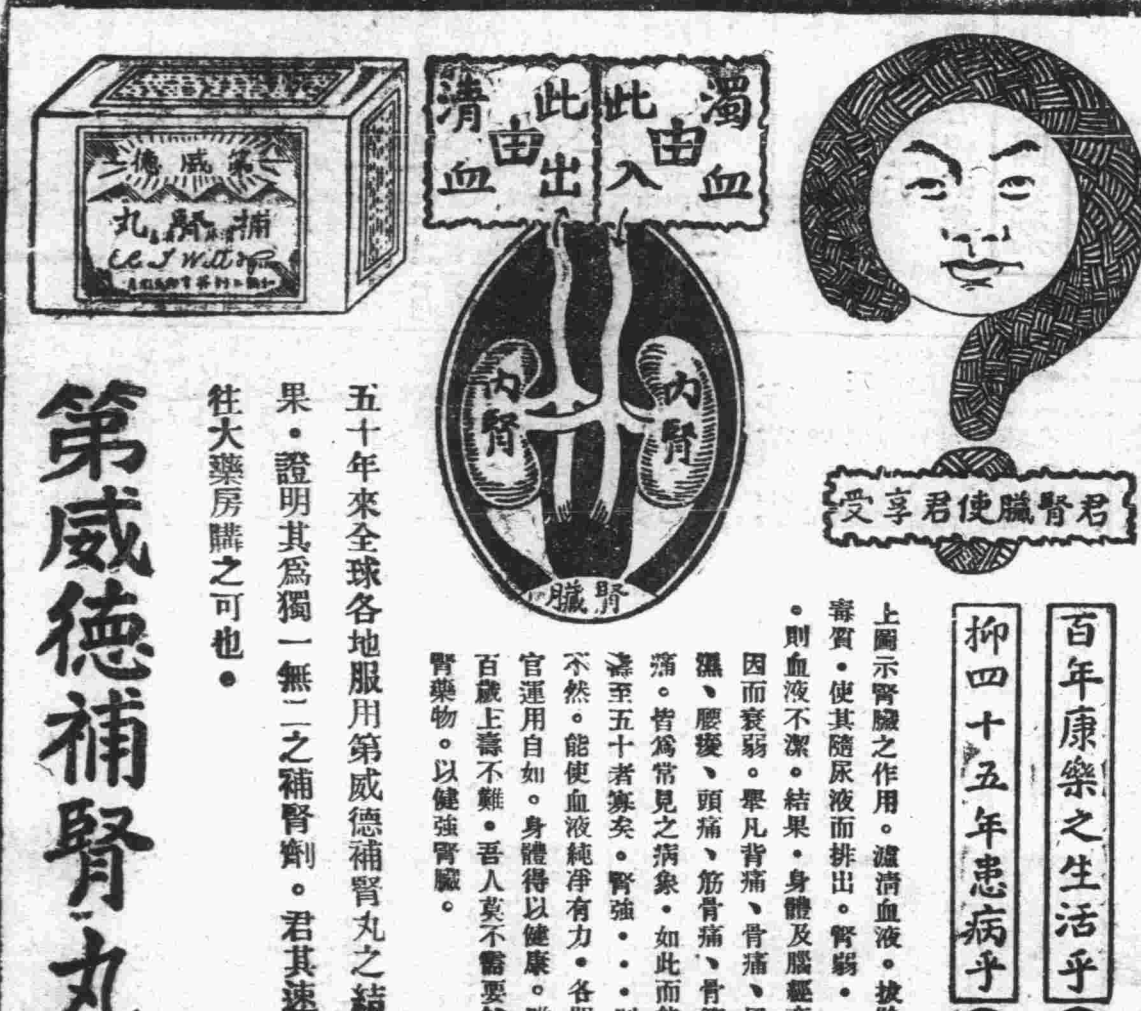 君腎臟使君享受
百年康樂之生活乎
抑四十五年患病乎
濁血
由
此入
此出
由
清血
內腎
內腎
腎臟
第威德
補腎丸
上圖示腎臟之作用。濾清血液。拔
毒質。使其隨尿液而排出。腎弱。
。則血液不潔。結果。身體及腦經
因而衰弱。舉凡背痛、骨痛、
濕、腰痠、頭痛、筋骨痛、骨
痛。皆為常見之病象。如此而
壽至五十者寡矣。腎強。
不然。能使血液純淨有力。各
官運用自如。身體得以健康。
百歲上壽不難。吾人莫不需要
腎藥物。以健強腎臟。
五十年來全球各地服用第威德補腎丸之結
果。證明其為獨一無二之補腎劑。君其速
往大藥房購之可也。
第威德補腎丸